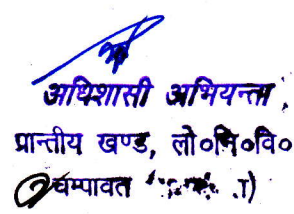 अधिशासी अभियन्ता,
प्रान्तीय खण्ड, लो०नि०वि०
चम्पावत